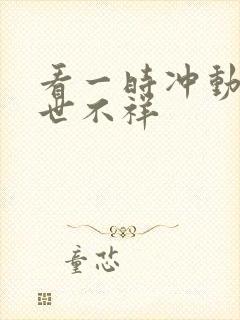 看一时冲动
世不祥
童芯